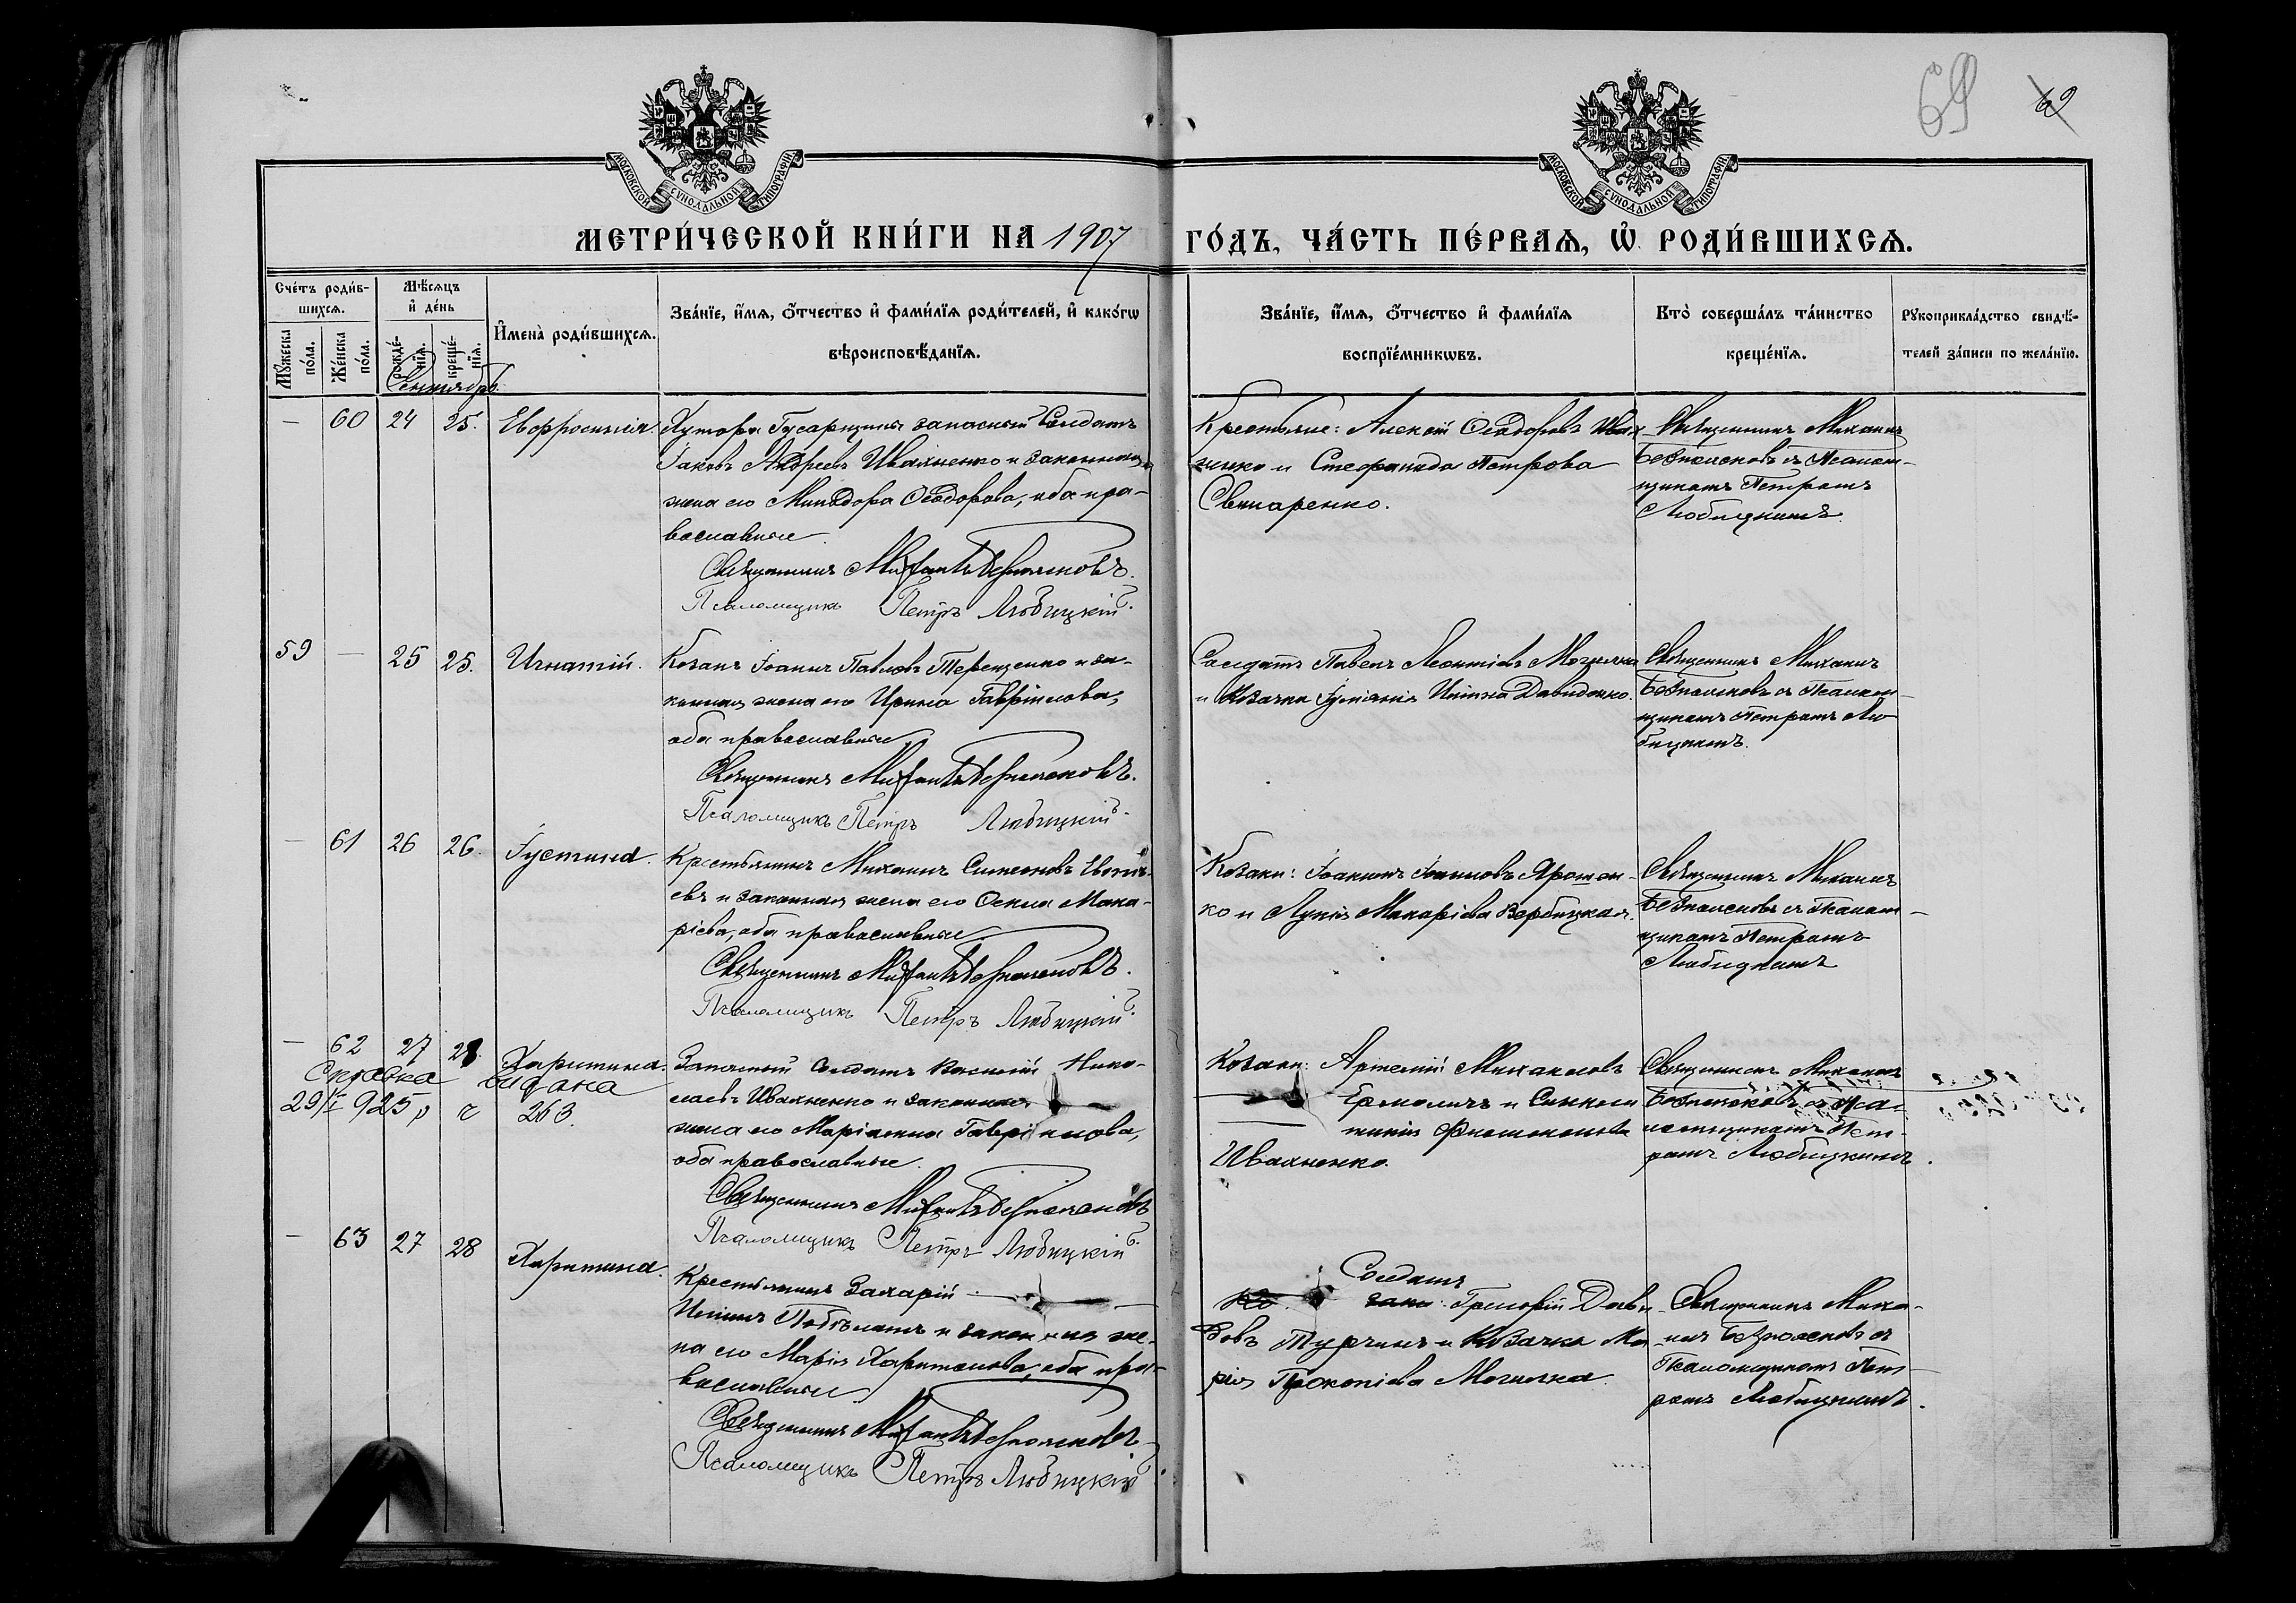 69
62
МОСКОВСКОЙ СѴНОДАЛЬНОЙ ТИПОГРАФІИ
МОСКОВСКОЙ СѴНОДАЛЬНОЙ ТИПОГРАФІИ
МЕТРИ́ЧЕСКОЙ КНИ́ГИ НА 1907 ГО́ДЪ, ЧА́СТЬ ПЕ́РВАѦ, Ѡ РОДИ́ВШИХСѦ.
Сче́тъ роди́в-
шихсѧ.
Мꙋ́жеска по́ла.
Же́нска по́ла.
Мѣ́сѧцъ
и де́нь
рожде́-
нїѧ.
креще́-
нїѧ.
Имена̀ роди́вшихсѧ.
Зва́нїе, и́мѧ, о́тчество и фами́лїѧ роди́телей, и како́гѡ
вѣроисповѣ́данїѧ.
Зва́нїе, и́мѧ, о́тчество и фами́лїѧ
воспрїе́мникѡвъ.
Кто̀ соверша́лъ та́инство
креще́нїѧ.
Рꙋкоприкла́дство свидѣ́-
телей за́писи по жела́нїю.
Сентябрь
— 60 24 25. Евфросинія.
Хутора Гусарщины запасный Солдатъ
Іаковъ Андреевъ Ивахненко и законная
жена его Минодора Ѳеодорова, оба пра-
вославные
Священникъ Михаилъ Безпоясковъ.
Псаломщикъ Петръ Любицкій.
Крестьяне: Алексій Ѳеодоровъ Ивах-
ненко и Стефанида Петрова
Свинаренко.
Священникъ Михаилъ
съ Псалом-
щикомъ Петромъ
Любицкимъ.
59 — 25 25. Игнатій.
Козакъ Іоаннъ Павловъ Терещенко и за-
конная жена его Ирина Гавріилова,
оба православные
Священникъ Михаилъ
Псаломщикъ Петръ Любицкій.
Солдатъ Павелъ Леонтіевъ Могилка
и Козачка Іуліанія Давиденко.
Священникъ Михаилъ
съ Псалом-
щикомъ Петромъ Лю-
бицкимъ.
— 61 26 26. Іустина.
Крестьянинъ Михаилъ Симеоновъ
евъ и законная жена его Ѳекла Мака-
ріева, оба православные
Священникъ Михаилъ
Псаломщикъ Петръ Любицкій.
Козаки: Іоакимъ Іоанновъ Ярошен-
ко и Лукія Макаріева Вербицкая.
Священникъ Михаилъ
съ Псалом-
щикомъ Петромъ
Любицкимъ
— 62 27 28. Харитина.
Справка выдана
29/I 925 р г 263.
Запасный Солдатъ Василій Нико-
лаевъ Ивахненко и законная
жена его Маріамна Гавріилова,
оба православные.
Священникъ Михаилъ
Псаломщикъ Петръ Любицкій.
Козаки: Артемій Михаиловъ
Ермоличъ и Синкли-
тикія Филимонова
Ивахненко.
Священникъ Михаилъ
съ Пса-
ломщикомъ Пет-
ромъ Любицкимъ.
— 63 27 28 Харитина.
Крестьянинъ Захарій
и законная же-
на его Марія Харитонова, оба пра-
вославные
Священникъ Михаилъ
Псаломщикъ Петръ Любицкій
Солдатъ
Ко заки: Григорій Дави-
довъ Турчинъ и Козачка Ма-
рія Прокопіева Могилка.
Священникъ Миха-
илъ съ
Псаломщикомъ Пет-
ромъ Любицкимъ.